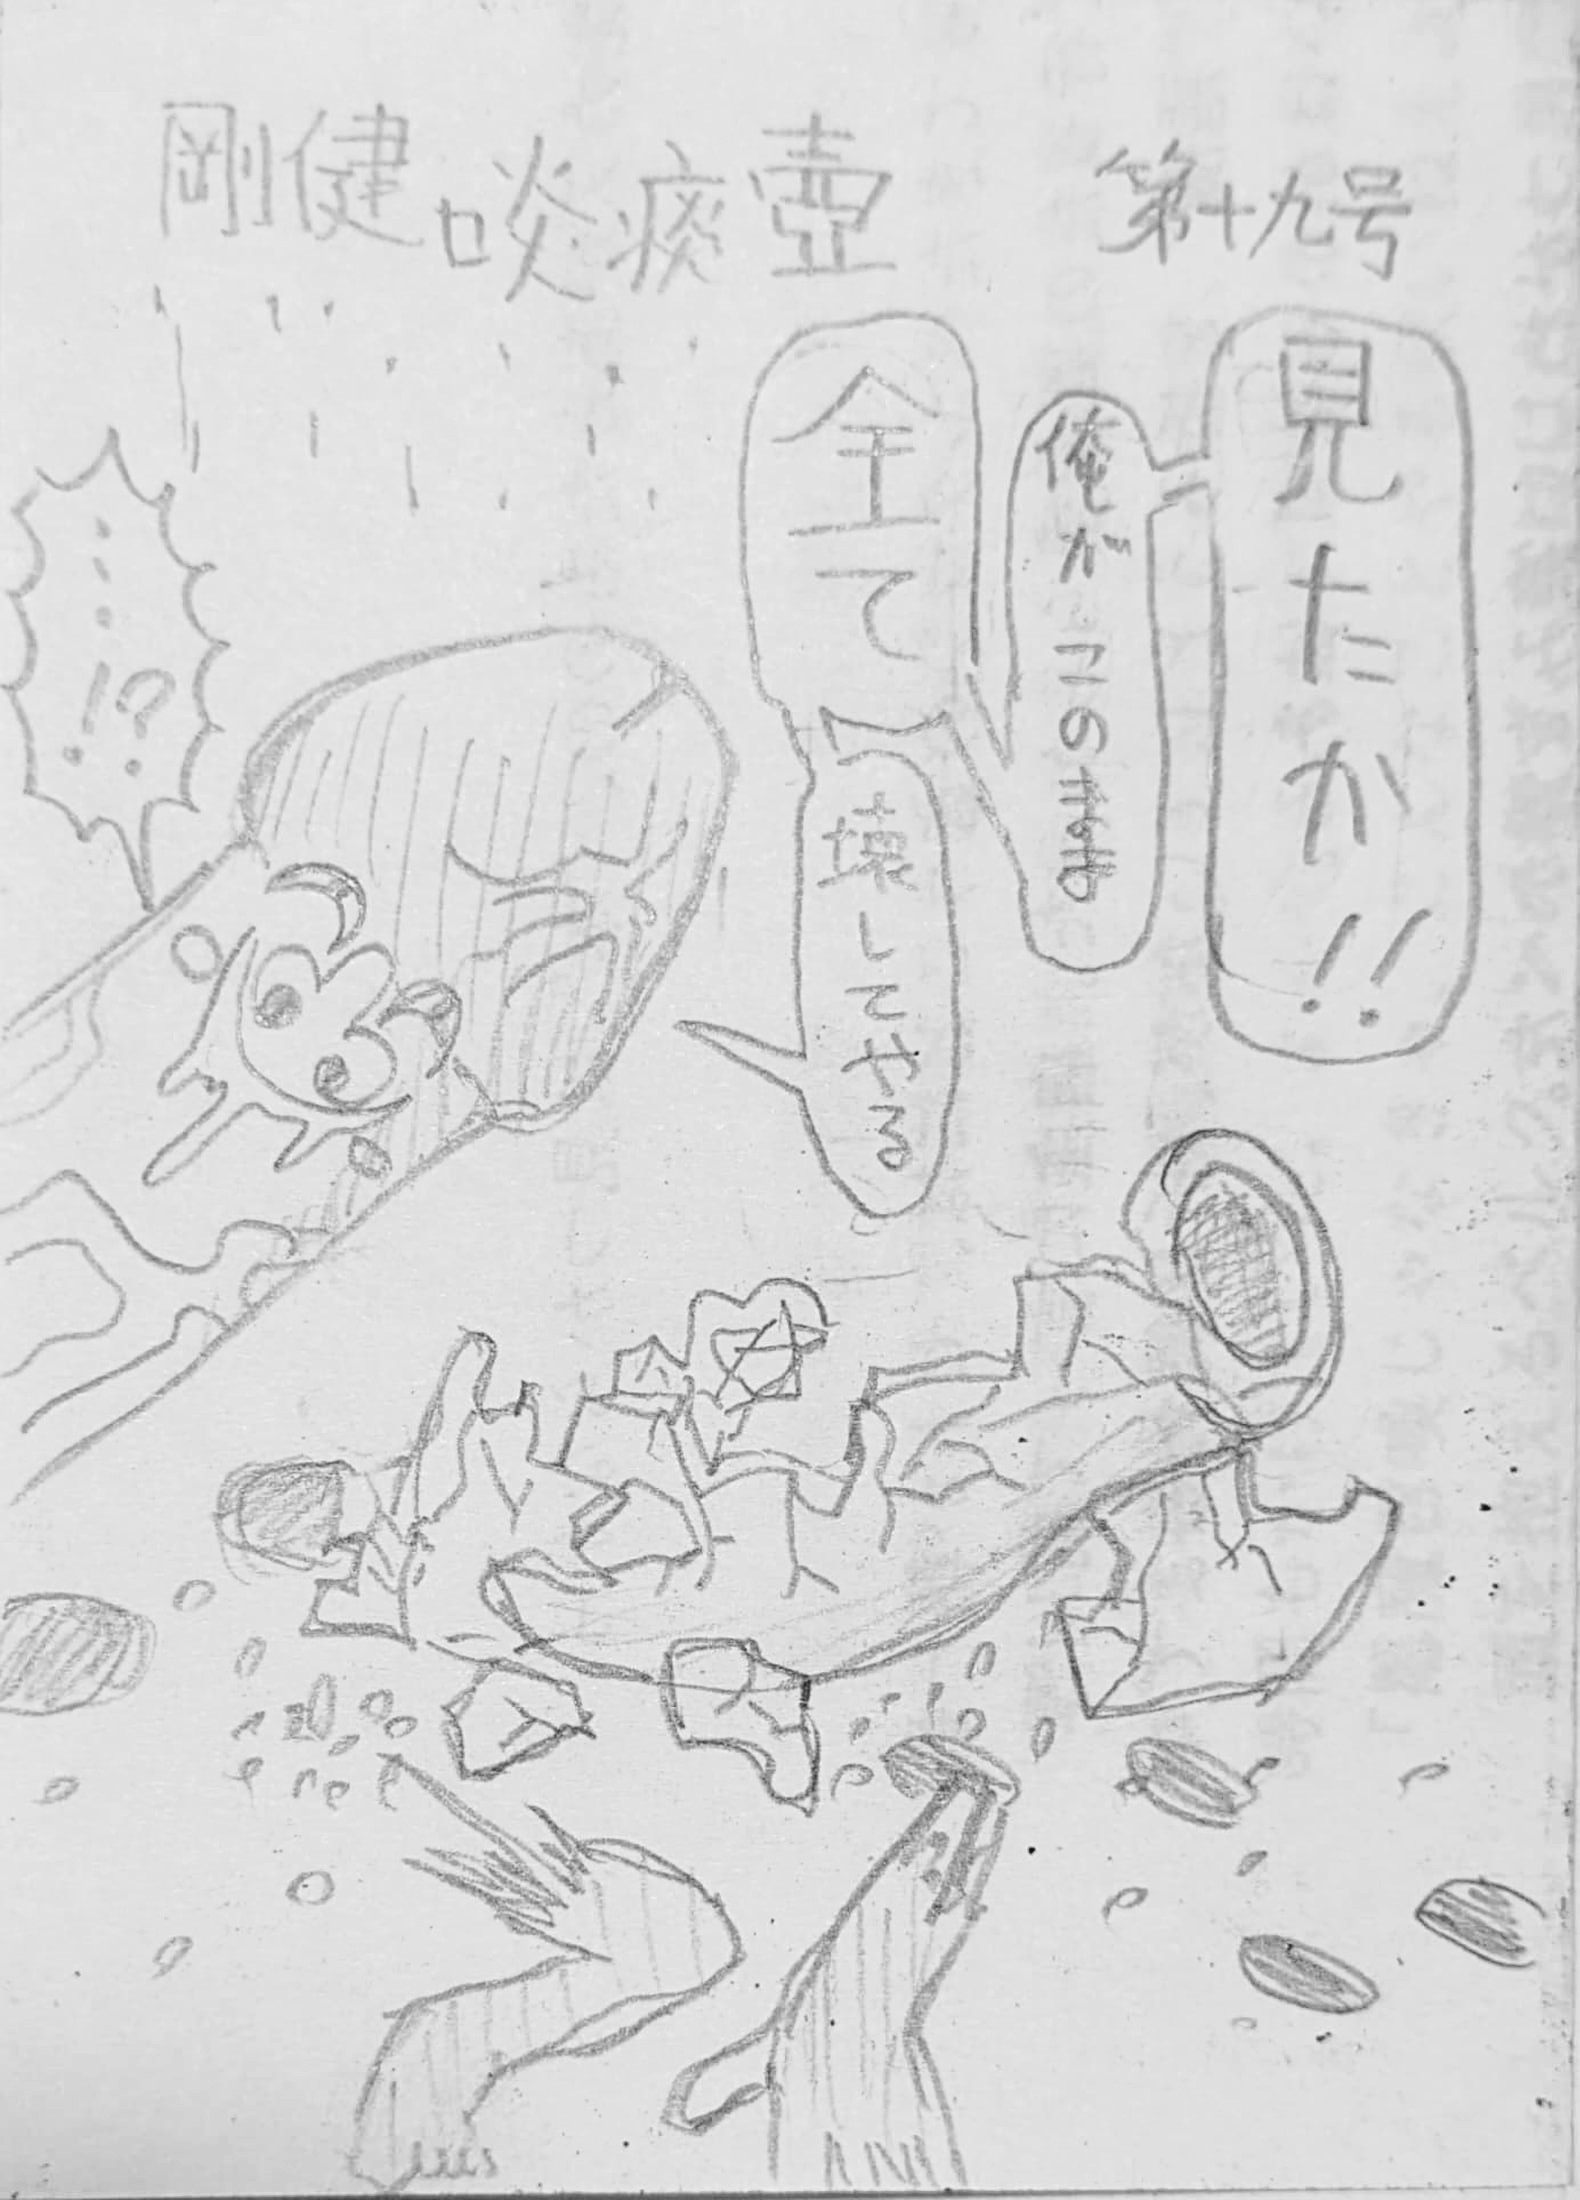 剛健啖痰壺 第十九号
見たか!!
俺がこの
全て
壊してやる
…!?